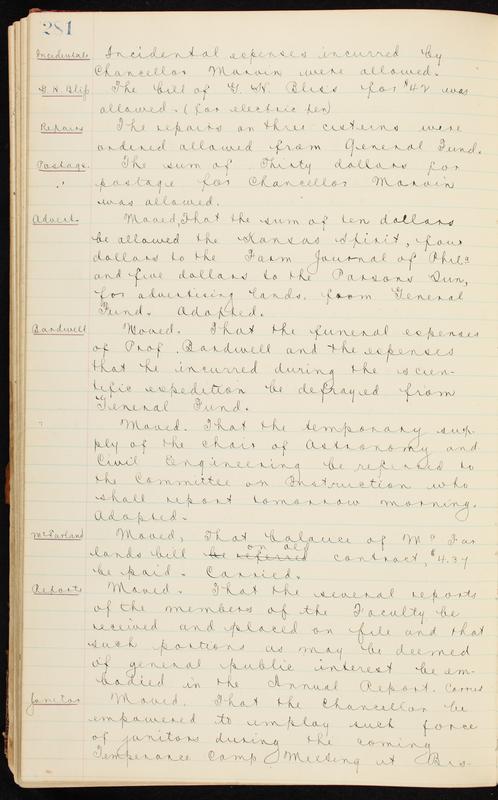 281
Incidentals Incidental expenses incurred by
Chancellor Marvin were allowed.
G. H. Bliss The bill of G. H. Bliss for $42 was
allowed. (for electric pen)
Repairs The repairs on three cisterns were
ordered allowed from General Fund.
Postage. The sum of Thirty dollars for
" postage for Chancellor Marvin
was allowed.
Advert. Moved, That the sum of ten dollars
be allowed the Kansas Spirit, four
dollars to the Farm Journal of Phila
and five dollars to the Parsons Sun,
for advertising lands. from General
Fund. Adopted.
Bardwell Moved. That the funeral expenses
of Prof. Bardwell and the expenses
that he incurred during the scien-
tific expedition be defrayed from
General Fund.
Moved. That the temporary sup-
ply of the chair of Astronomy and
Civil Engineering be referred to
the Committee on Instruction who
shall report tomorrow morning.
Adopted.
McFarland Moved, That balance of Mc Far
lands bill be referred on contract, $4.37
be paid. Carried.
Reports Moved. That the several reports
of the members of the Faculty be
received and placed on file and that
such portions as may be deemed
of general public interest be em-
bodied in the Annual Report. Carried
Janitor Moved. That the Chancellor be
empowered to employ such force
of janitors during the coming
Temperance Camp Meeting at Bis-